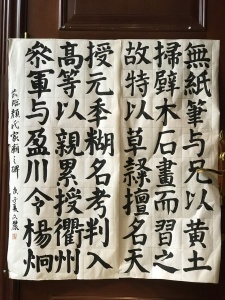 無紙筆与兄以黄土
掃壁木石畫而習之
故特以草隸擅名天
授元季糊名考判入
高等以親累授衢州
叅軍与盈川令楊炯
臨顏氏家廟之碑